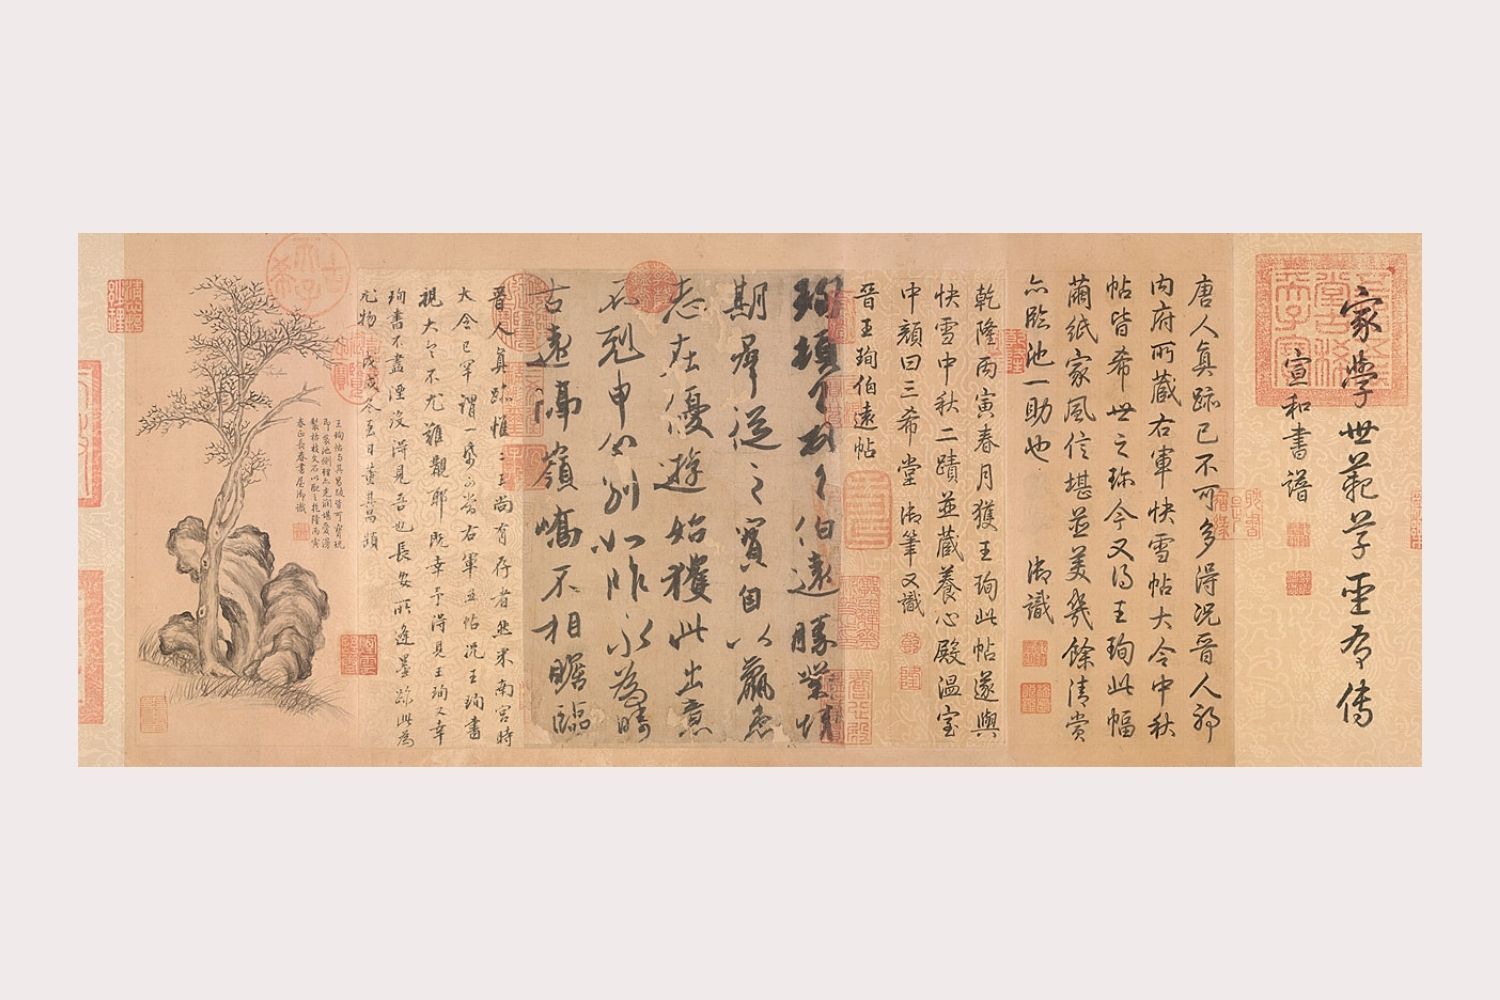 家學世範草聖有傳
宣和書譜
唐人真跡已不可多得況晉人耶
內府所藏右軍快雪帖大令中秋
帖皆希世之珎今又得王珣此幅
繭紙家風信堪並美幾餘清賞
亦臨池一助也 御識
乾隆丙寅春月獲王珣此帖遂與
快雪中秋二蹟並藏養心殿溫室
中顏曰三希堂 御筆又識
晉王珣伯遠帖
珣頓首頓首伯遠勝業情
期群從之寶自以羸患
志在優遊始獲此出意
不剋申分別如昨永為疇
古遠隔嶺嶠不相瞻臨
晉人真跡惟二王尚有存者然米南宮時
大令已罕謂一紙可當右軍五帖況王珣書
視大令不尤難覯耶 既幸予得見王珣又幸
珣書不盡湮沒得見吾也長安所逢墨跡此為
尤物 戊戌冬至日董其昌題
王珣帖與其昌跋皆可寶玩
即裝池側理亦光潤堪愛漫
製枯枝文石以配之乾隆丙寅
春正長春書屋御識